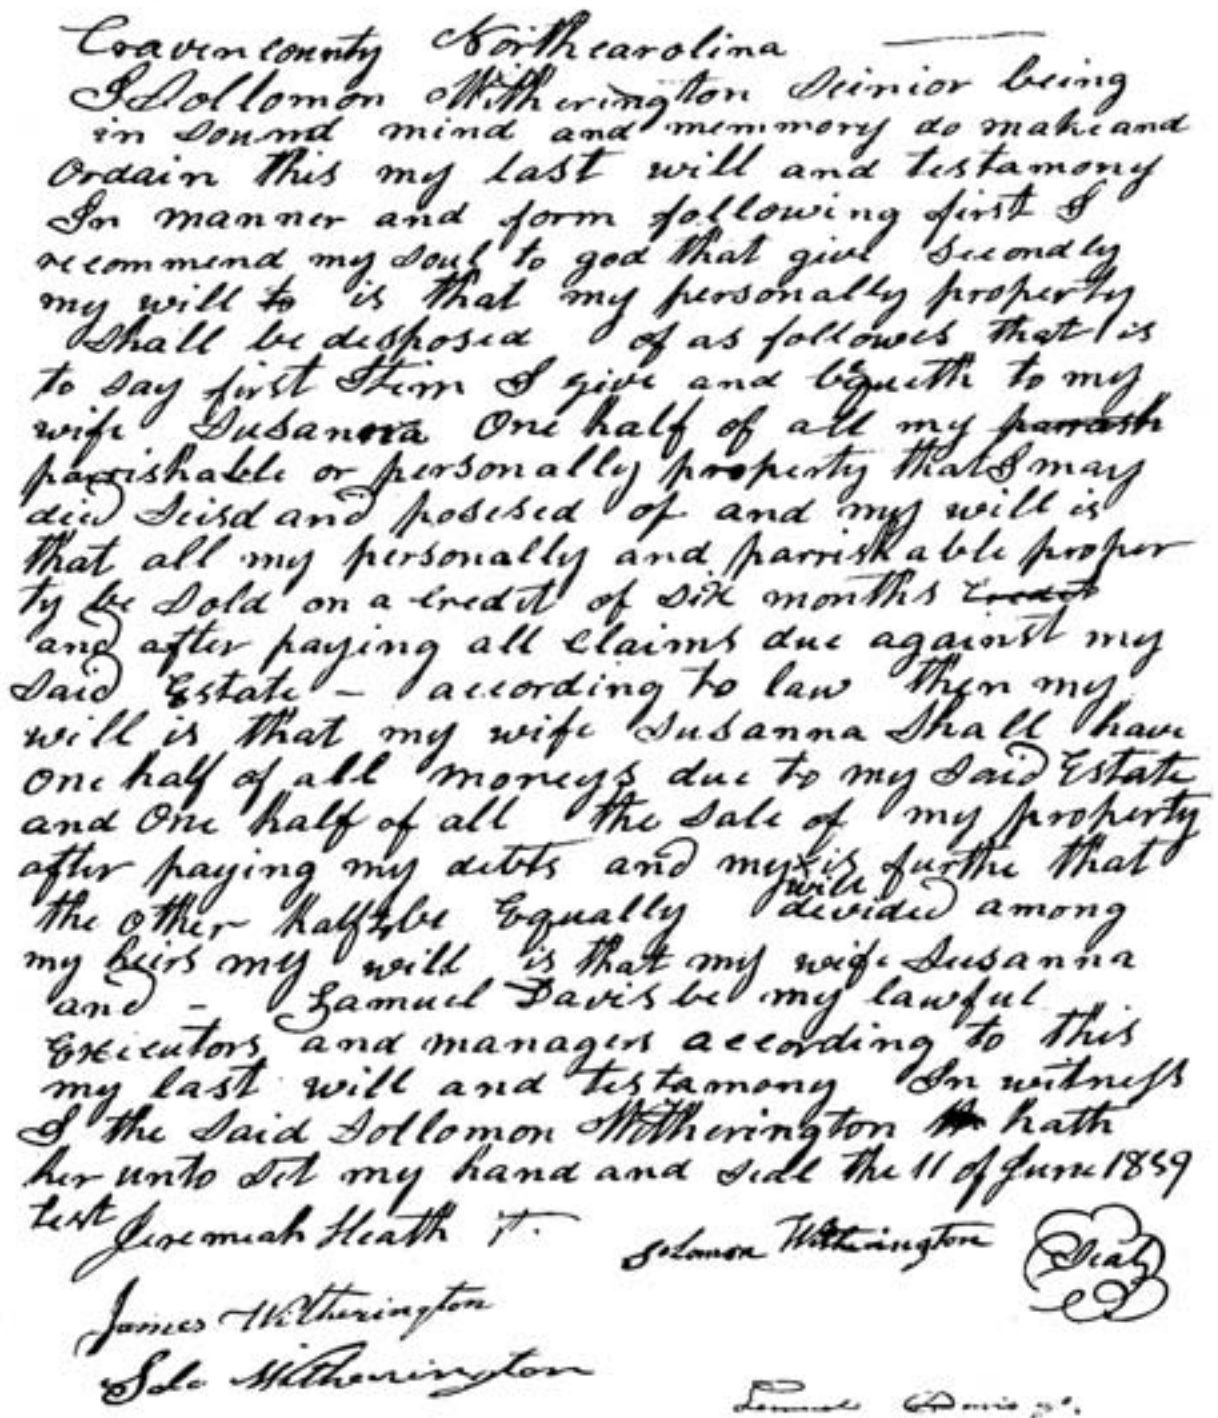 Craven county Northcarolina
I Sollomon Witherington Seinior being
in sound mind and memmory do make and
Ordain this my last will and testamony
In manner and form following first I
recommend my soul to god that give Secondly
my will to is that my personally property
Shall be desposed of as followes that is
to say first Item I give and bqueth to my
wife Susanna One half of all my parrash
parrishable or personally property that I may
died Seisd and posesed of and my will is
that all my personally and parrishable proper
ty be Sold on a Credit of six months Credit
and after paying all Claims due against my
Said Estate - according to law then my
will is that my wife Susanna Shall have
One half of all moneys due to my Said Estate
and One half of all the Sale of my property
after paying my debts and my x is furthe that
will
the other half to be Equally devided among
my heirs my will is that my wife Susanna
and - Samuel Davis be my lawful
Executors and managers according to this
my last will and testamony In witness
I the Said Sollomon Witherington hath
her unto Set my hand and Seal the 11 of June 1859
test Jeremiah Heath
Solomon Witherington Seal
James Witherington
Solo Witherington
Davis